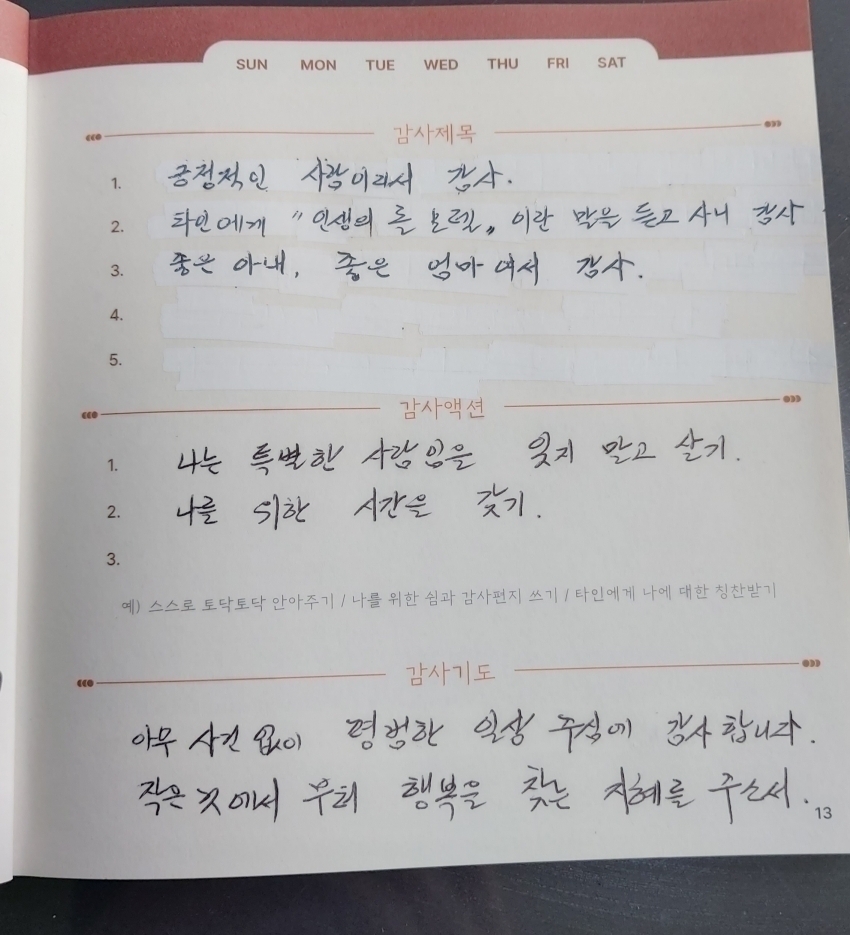 SUN MON TUE WED THU FRI SAT
감사제목
1. 긍정적인 사람이라서 감사.
2. 타인에게 "인생의 롤 모델" 이란 말을 듣고 사니 감사
3. 좋은 아내, 좋은 엄마여서 감사.
4.
5.
감사액션
1. 나는 특별한 사람임을 잊지 말고 살기.
2. 나를 위한 시간을 갖기.
3.
예) 스스로 토닥토닥 안아주기 / 나를 위한 쉼과 감사편지 쓰기 / 타인에게 나에 대한 칭찬받기
감사기도
아무 사건 없이 평범한 일상 주심에 감사합니다.
작은 것에서 부터 행복을 찾는 지혜를 주소서.
13